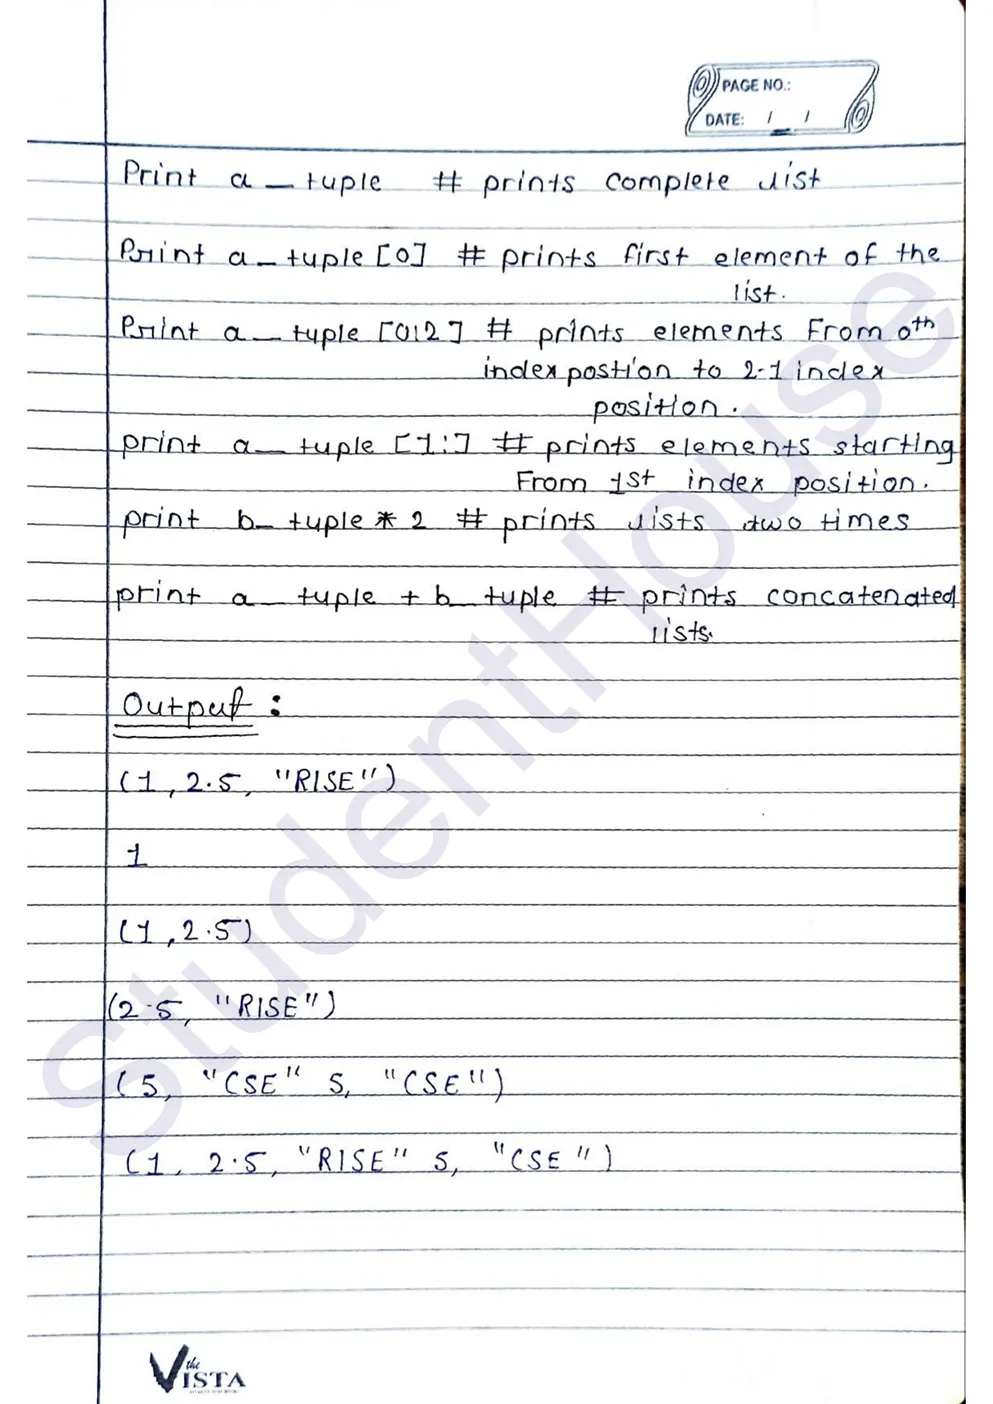 PAGE NO.:
DATE: / /
Print a_tuple # prints complete list
Print a_tuple [0] # prints first element of the
list.
Print a_tuple [0:2] # prints elements From 0th
index postion to 2-1 index
position.
print a_tuple [1:] # prints elements starting
From 1st index position.
print b_tuple * 2 # prints lists two times
print a_tuple + b_tuple # prints concatenated
lists.
Output :
(1, 2.5, "RISE")
1
(1, 2.5)
(2.5, "RISE")
(5, "CSE" 5, "CSE")
(1, 2.5, "RISE" 5, "CSE")
StudentHouse
the
VISTA